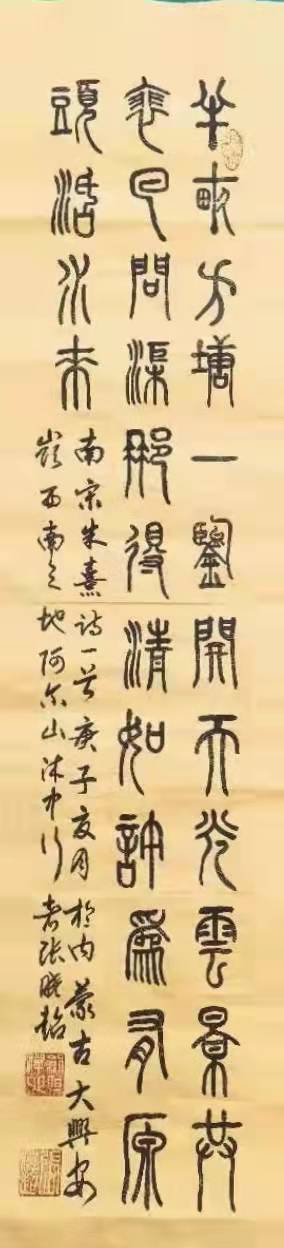 半畝方塘一鑒開天光雲景共
裵回問渠那得清如許爲有原
頭活水来
南宋朱熹詩一首庚子月於内蒙古大興安
嶺西南之地阿尔山林中行者張曉